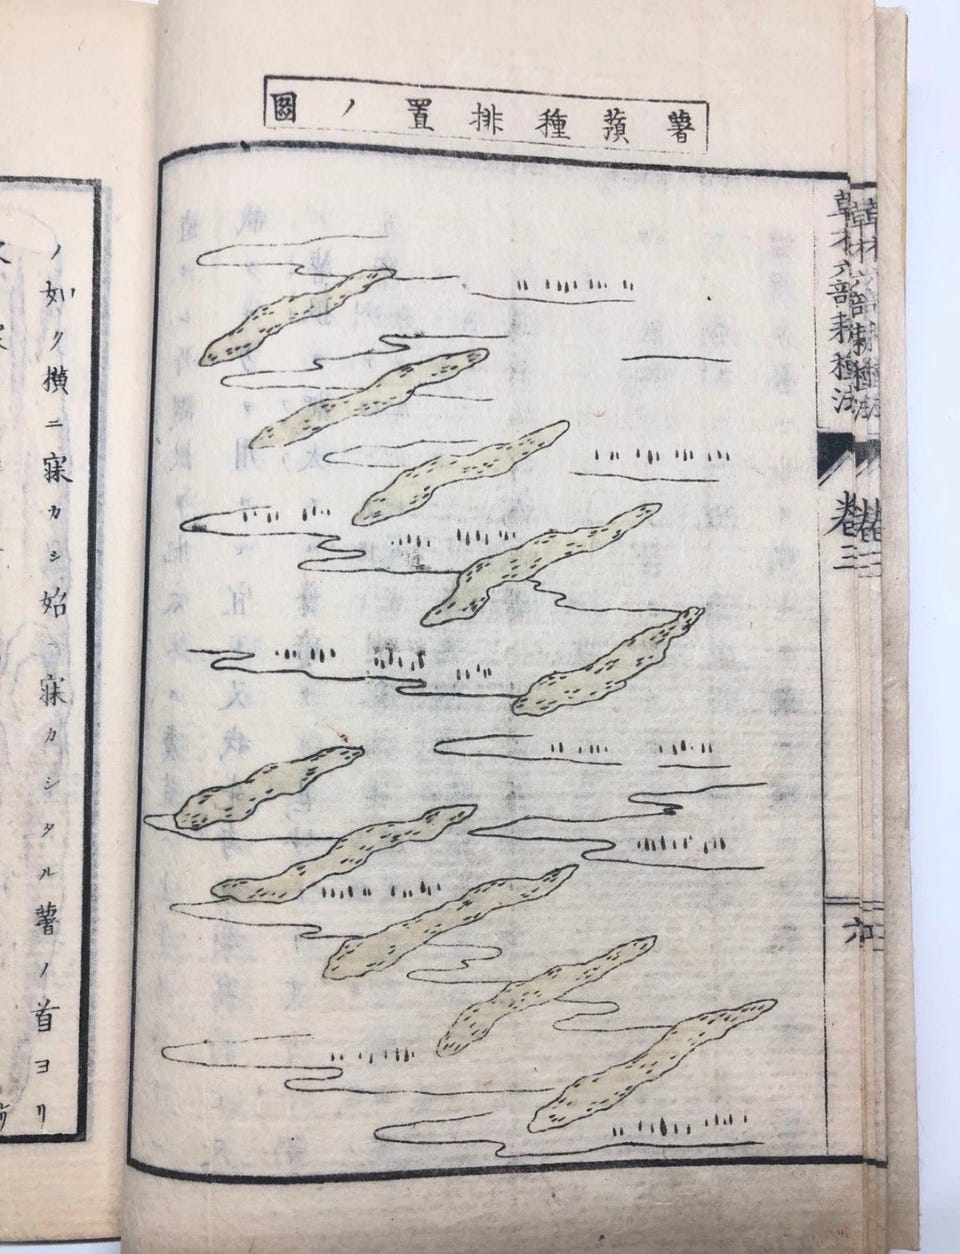 薯蕷種排置ノ圖
草木六部耕種法
卷三
六
ノ如ク横ニ寐カシ始ニ寐カシタル薯ノ首ヨリ